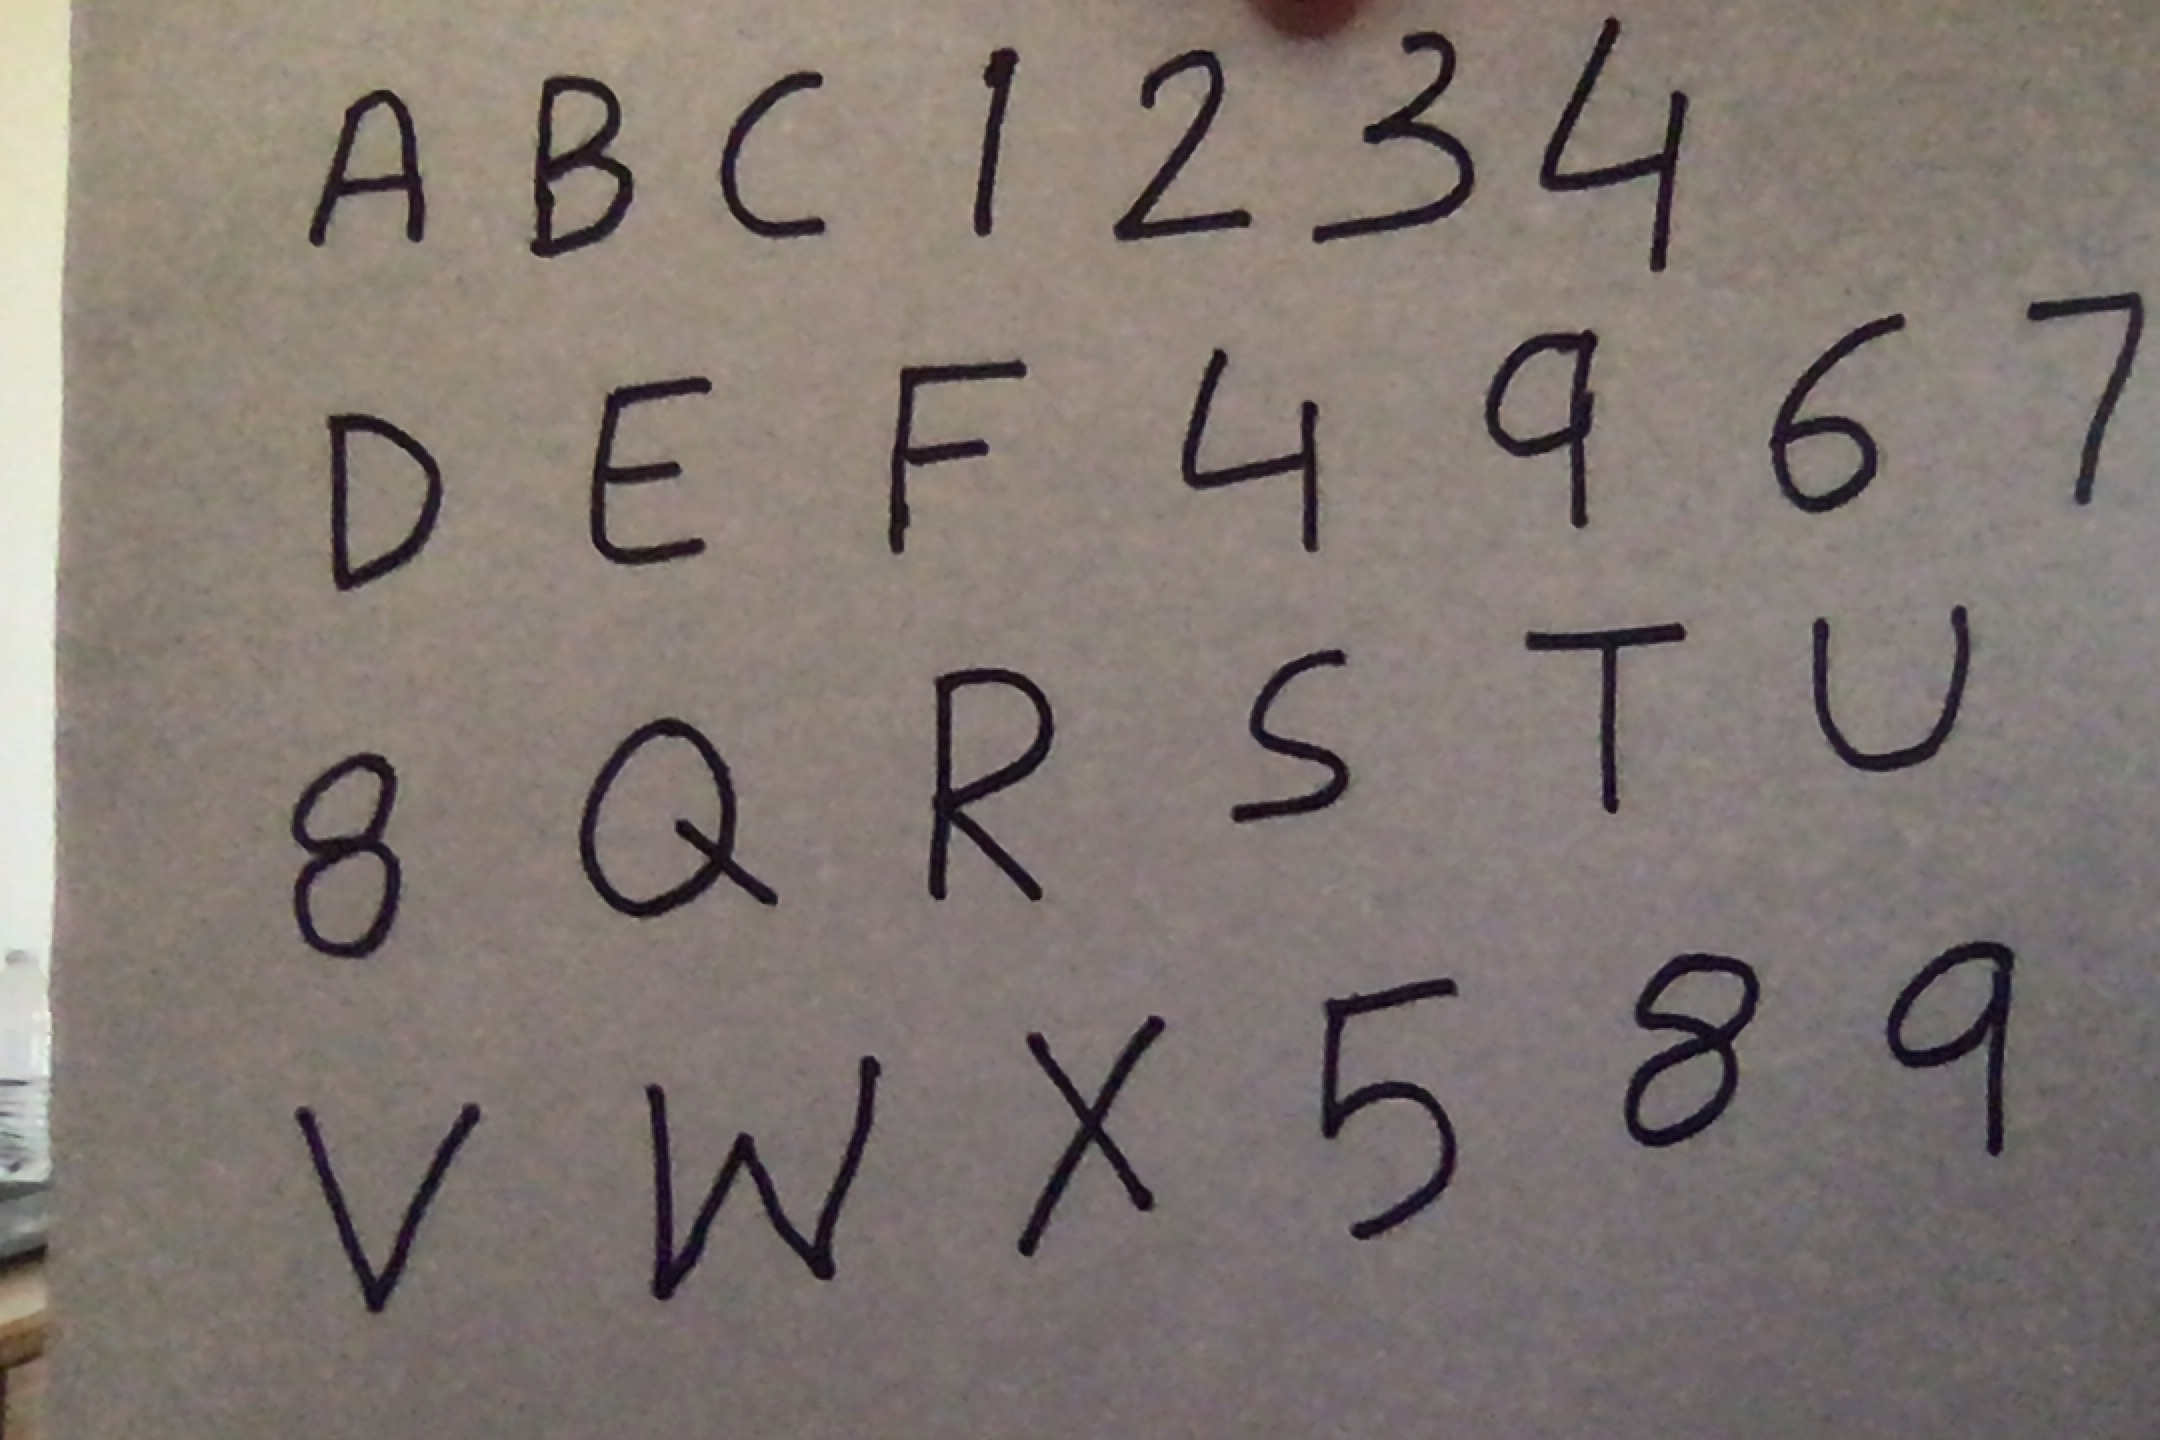 A B C 1 2 3 4
D E F 4 9 6 7
8 Q R S T U
V W X 5 8 9